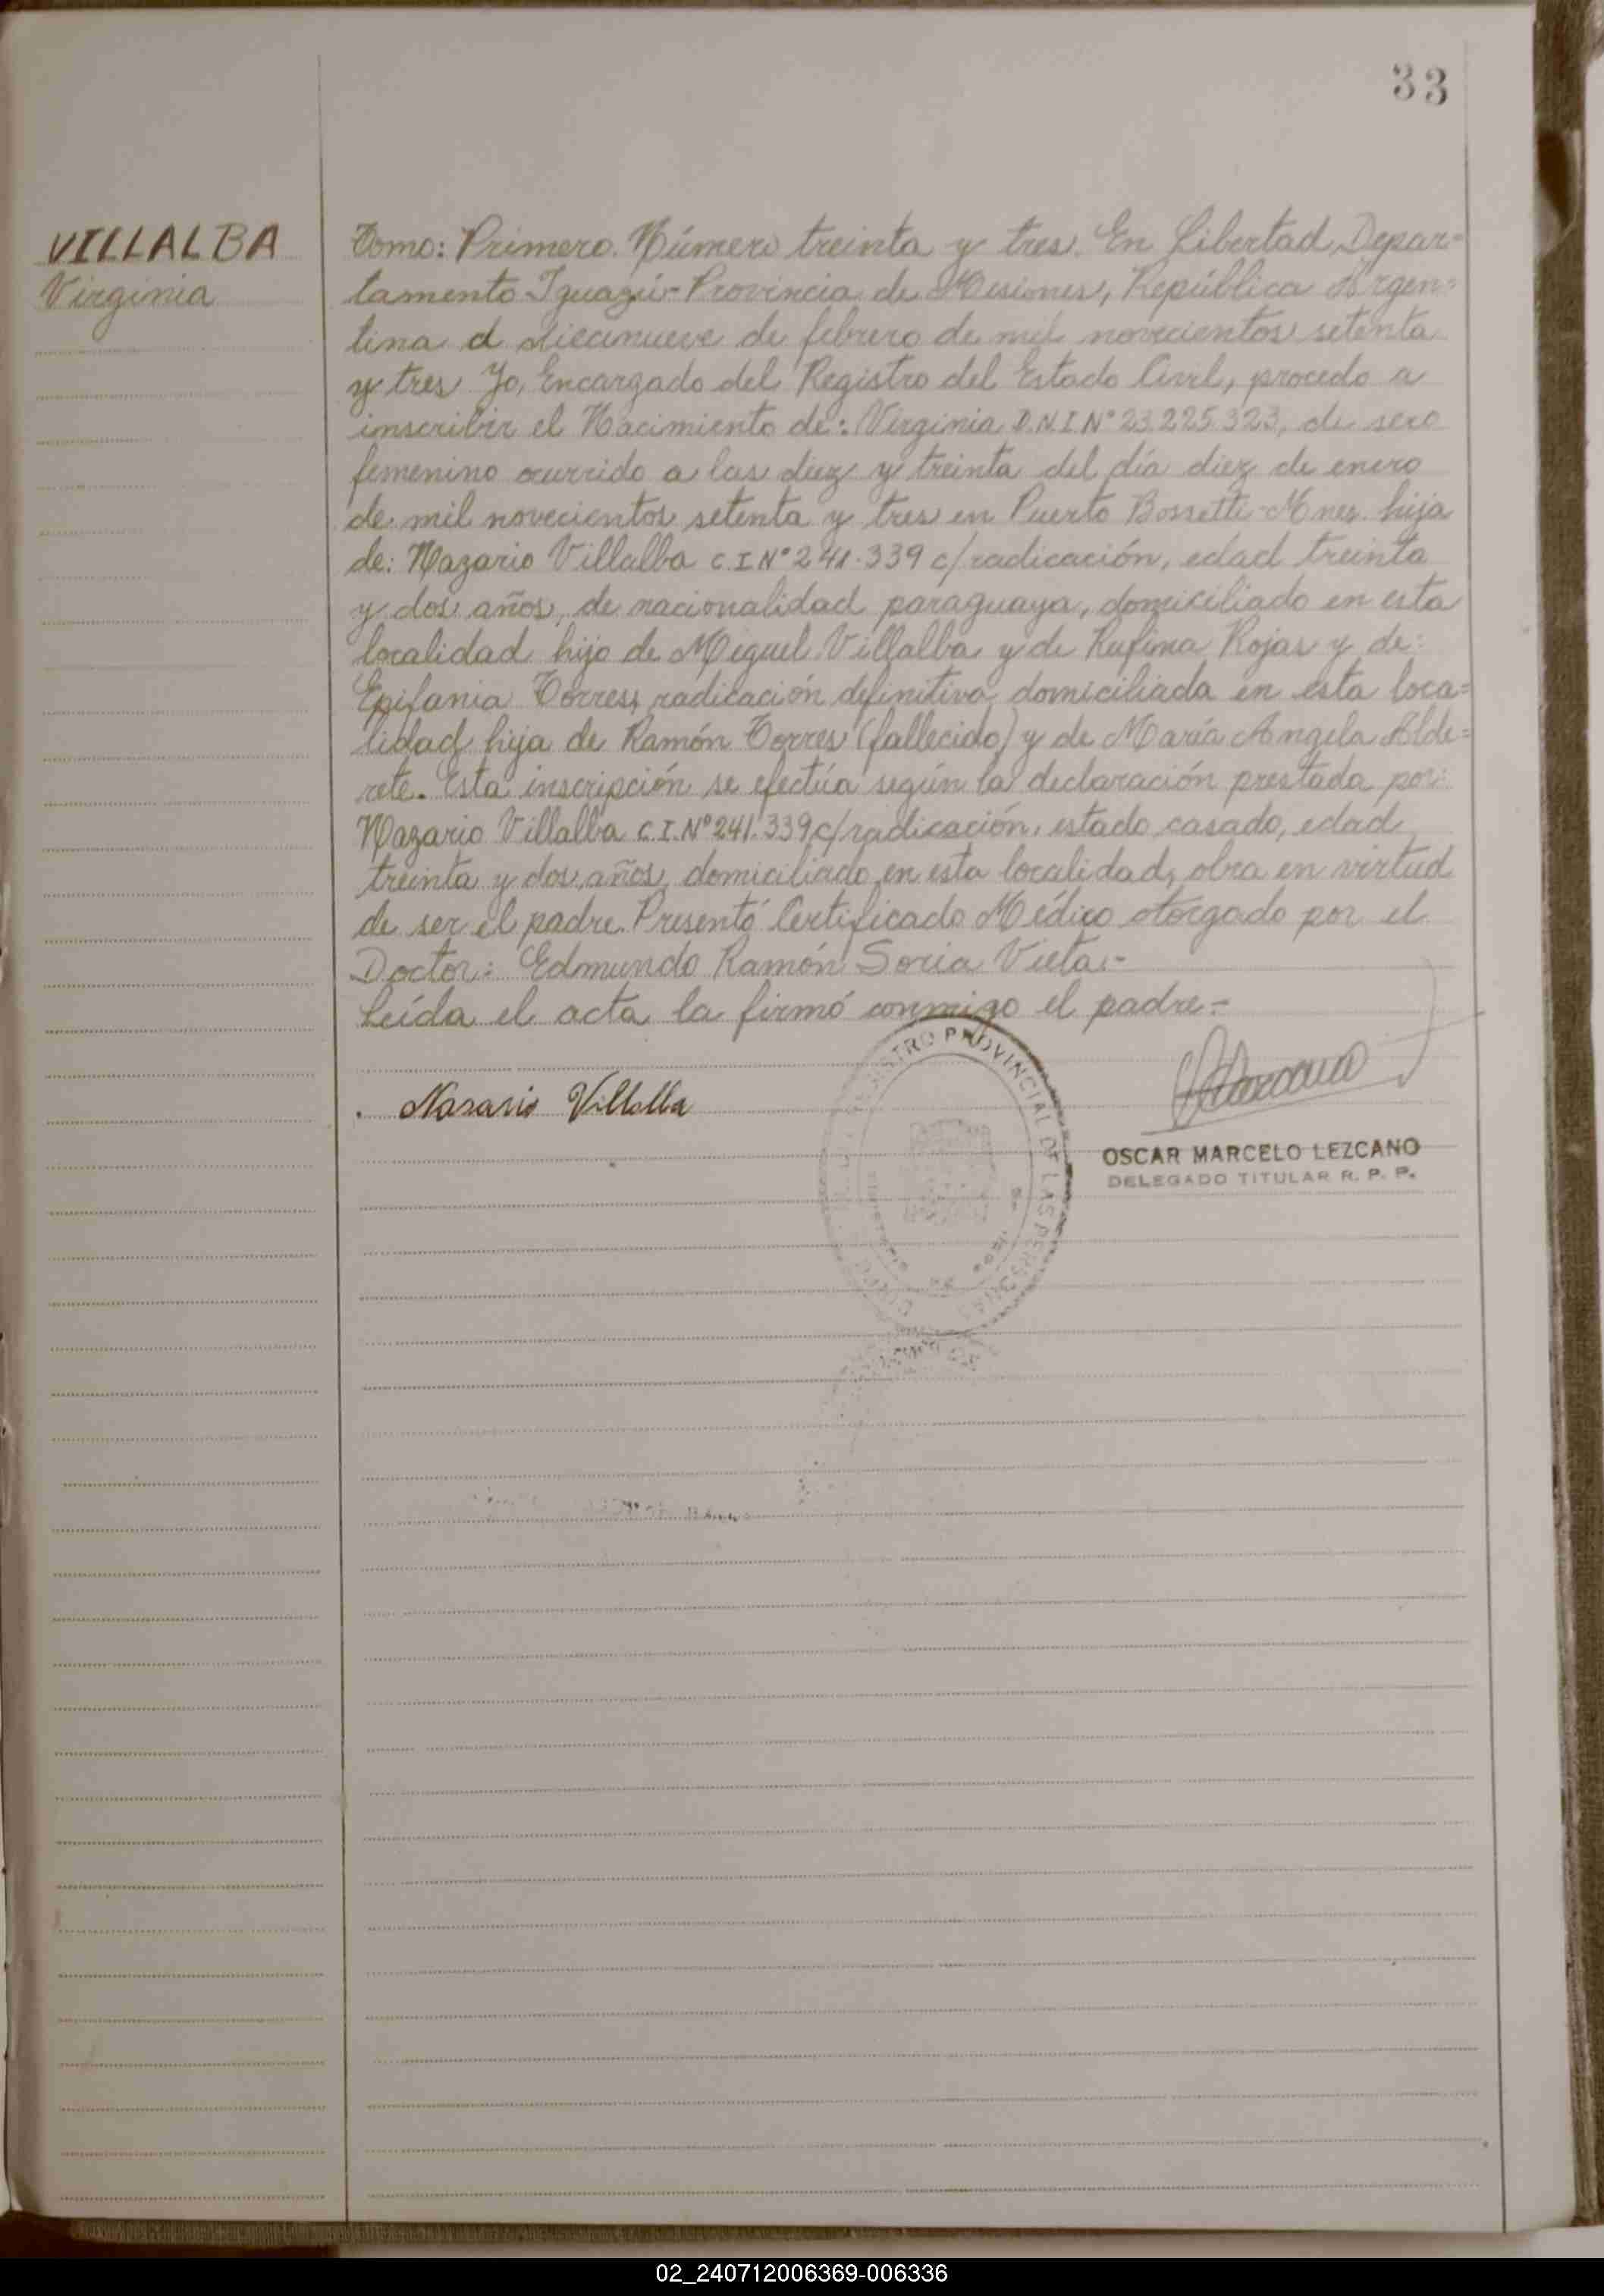 33
VILLALBA
Virginia
Tomo: Primero. Número treinta y tres. En Libertad, Depar=
tamento Iguazú- Provincia de Misiones, República Argen=
tina a diecinueve de febrero de mil novecientos setenta
y tres Yo, Encargado del Registro del Estado Civil, procedo a
inscribir el Nacimiento de: Virginia D.N.I.Nº 23.225.323, de sexo
femenino ocurrido a las diez y treinta del día diez de enero
de mil novecientos setenta y tres en Puerto Bossetti-Mnes. hija
de: Nazario Villalba C.I.Nº 241.339 c/radicación, edad treinta
y dos años, de nacionalidad paraguaya, domiciliado en esta
localidad hijo de Miguel Villalba y de Rufina Rojas y de:
Epifania Torres, radicación definitiva, domiciliada en esta loca=
lidad, hija de Ramón Torres (fallecido) y de María Angela Alde=
rete. Esta inscripción se efectúa según la declaración prestada por:
Nazario Villalba C.I.Nº 241.339 c/radicación, estado casado, edad
treinta y dos años, domiciliado en esta localidad, obra en virtud
de ser el padre. Presentó Certificado Médico otorgado por el
Doctor: Edmundo Ramón Soria Vieta.-
Leída el acta la firmó conmigo el padre.-
Nasario Villalba
REGISTRO PROVINCIAL DE LAS PERSONAS
OSCAR MARCELO LEZCANO
DELEGADO TITULAR R. P. P.
02_240712006369-006336